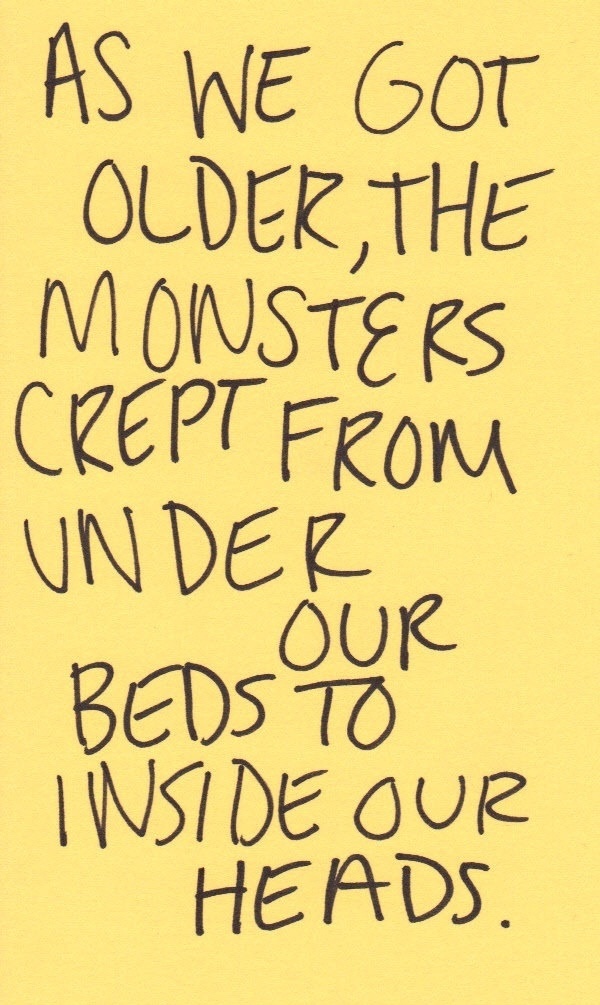 AS WE GOT
OLDER, THE
MONSTERS
CREPT FROM
UNDER
OUR
BEDS TO
INSIDE OUR
HEADS.